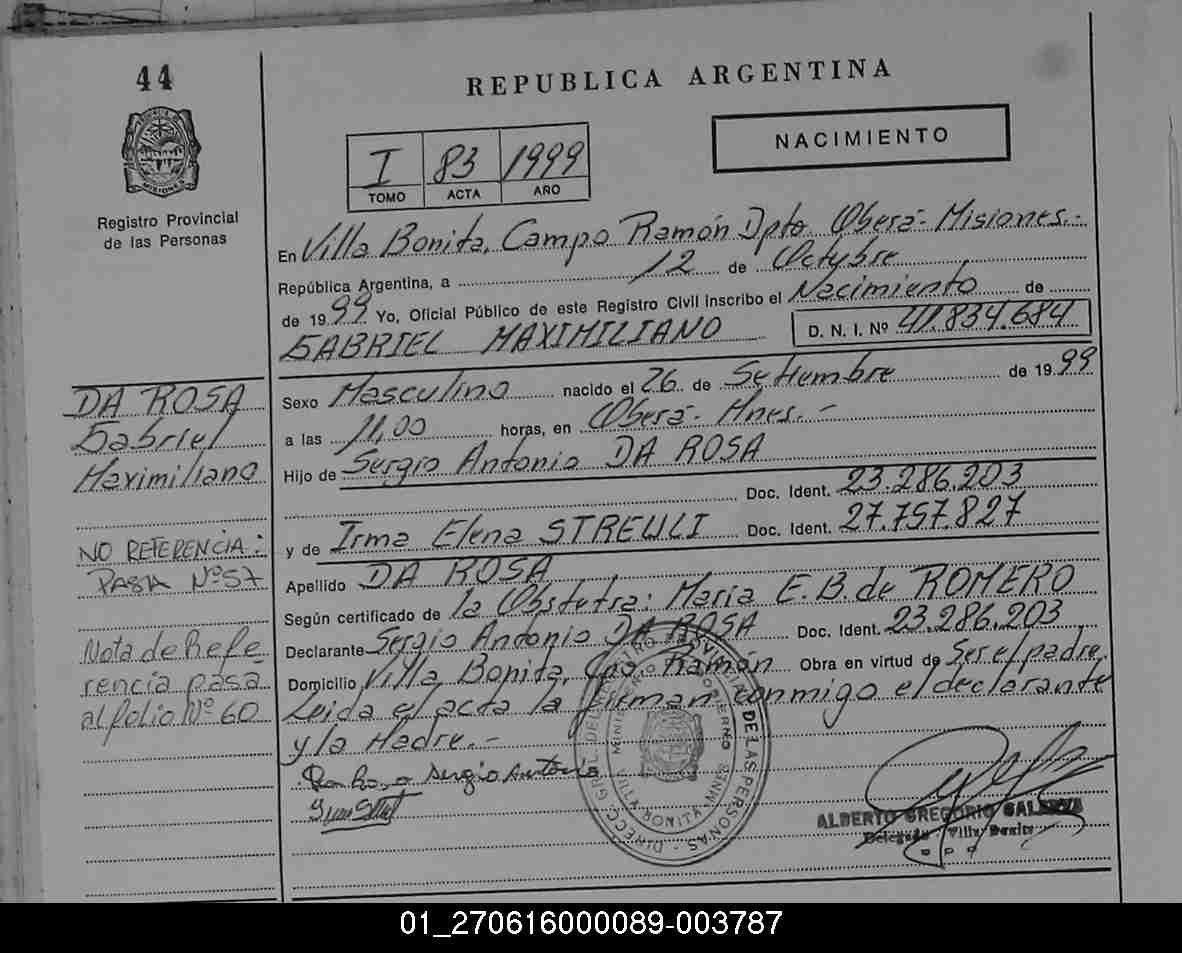 44
REPUBLICA ARGENTINA
MISIONES
Registro Provincial
de las Personas
I 83 1999
TOMO ACTA AÑO
NACIMIENTO
En Villa Bonita, Campo Ramón Dpto Oberá - Misiones.-
República Argentina, a 12 de Octubre
de 1999 Yo, Oficial Público de este Registro Civil inscribo el Nacimiento de
GABRIEL MAXIMILIANO D. N. I. Nº 41.834.684
Sexo Masculino nacido el 26 de Setiembre de 1999
a las 11,00 horas, en Oberá - Mnes. -
Hijo de Sergio Antonio DA ROSA
Doc. Ident. 23.286.203
y de Irma Elena STREULI Doc. Ident. 27.757.827
Apellido DA ROSA
Según certificado de la Obstetra: Maria E. B. de ROMERO
Declarante Sergio Antonio DA ROSA Doc. Ident. 23.286.203
Domicilio Villa Bonita, Cpo Ramón Obra en virtud de Ser el padre.
Leida el acta la firman conmigo el declarante
y la Madre. -
Da Rosa Sergio Antonio
DA ROSA
Gabriel
Maximiliano
NO REFERENCIA:
PASA Nº 57
Nota de Refe-
rencia pasa
al folio Nº 60
DIRECC. GRAL. DEL REGISTRO PROVINCIAL DE LAS PERSONAS
MINISTERIO GOBIERNO
VILLA BONITA - MNES
ALBERTO GREGORIO
Delegado Villa Bonita
01_270616000089-003787